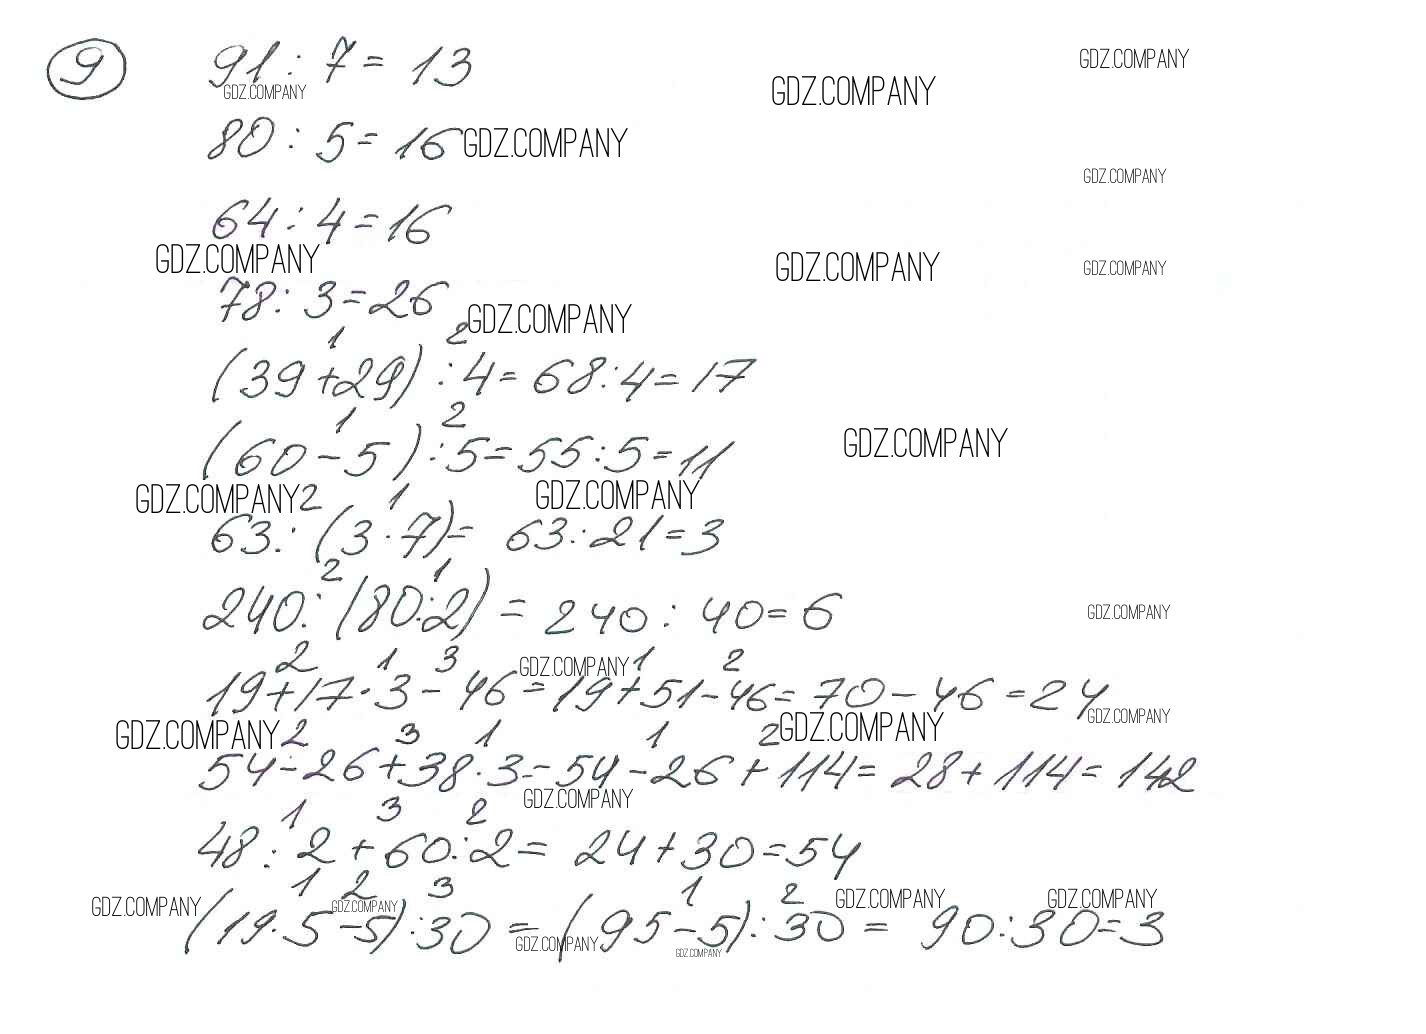 9 91 : 7 = 13
GDZ.COMPANY
GDZ.COMPANY
GDZ.COMPANY
80 : 5 = 16 GDZ.COMPANY
GDZ.COMPANY
64 : 4 = 16
GDZ.COMPANY GDZ.COMPANY GDZ.COMPANY
78 : 3 = 26
GDZ.COMPANY
1 2
(39 + 29) : 4 = 68 : 4 = 17
1 2
(60 - 5) : 5 = 55 : 5 = 11
GDZ.COMPANY
GDZ.COMPANY 2 1 GDZ.COMPANY
63 : (3 · 7) = 63 : 21 = 3
2 1
240 : (80 : 2) = 240 : 40 = 6
GDZ.COMPANY
2 1 3 GDZ.COMPANY 1 2
19 + 17 · 3 - 46 = 19 + 51 - 46 = 70 - 46 = 24
GDZ.COMPANY
GDZ.COMPANY 2 3 1 1 2 GDZ.COMPANY
54 - 26 + 38 · 3 = 54 - 26 + 114 = 28 + 114 = 142
GDZ.COMPANY
1 3 2
48 : 2 + 60 : 2 = 24 + 30 = 54
1 2 3 1 2
GDZ.COMPANY GDZ.COMPANY GDZ.COMPANY GDZ.COMPANY
(19 · 5 - 5) : 30 = (95 - 5) : 30 = 90 : 30 = 3
GDZ.COMPANY GDZ.COMPANY